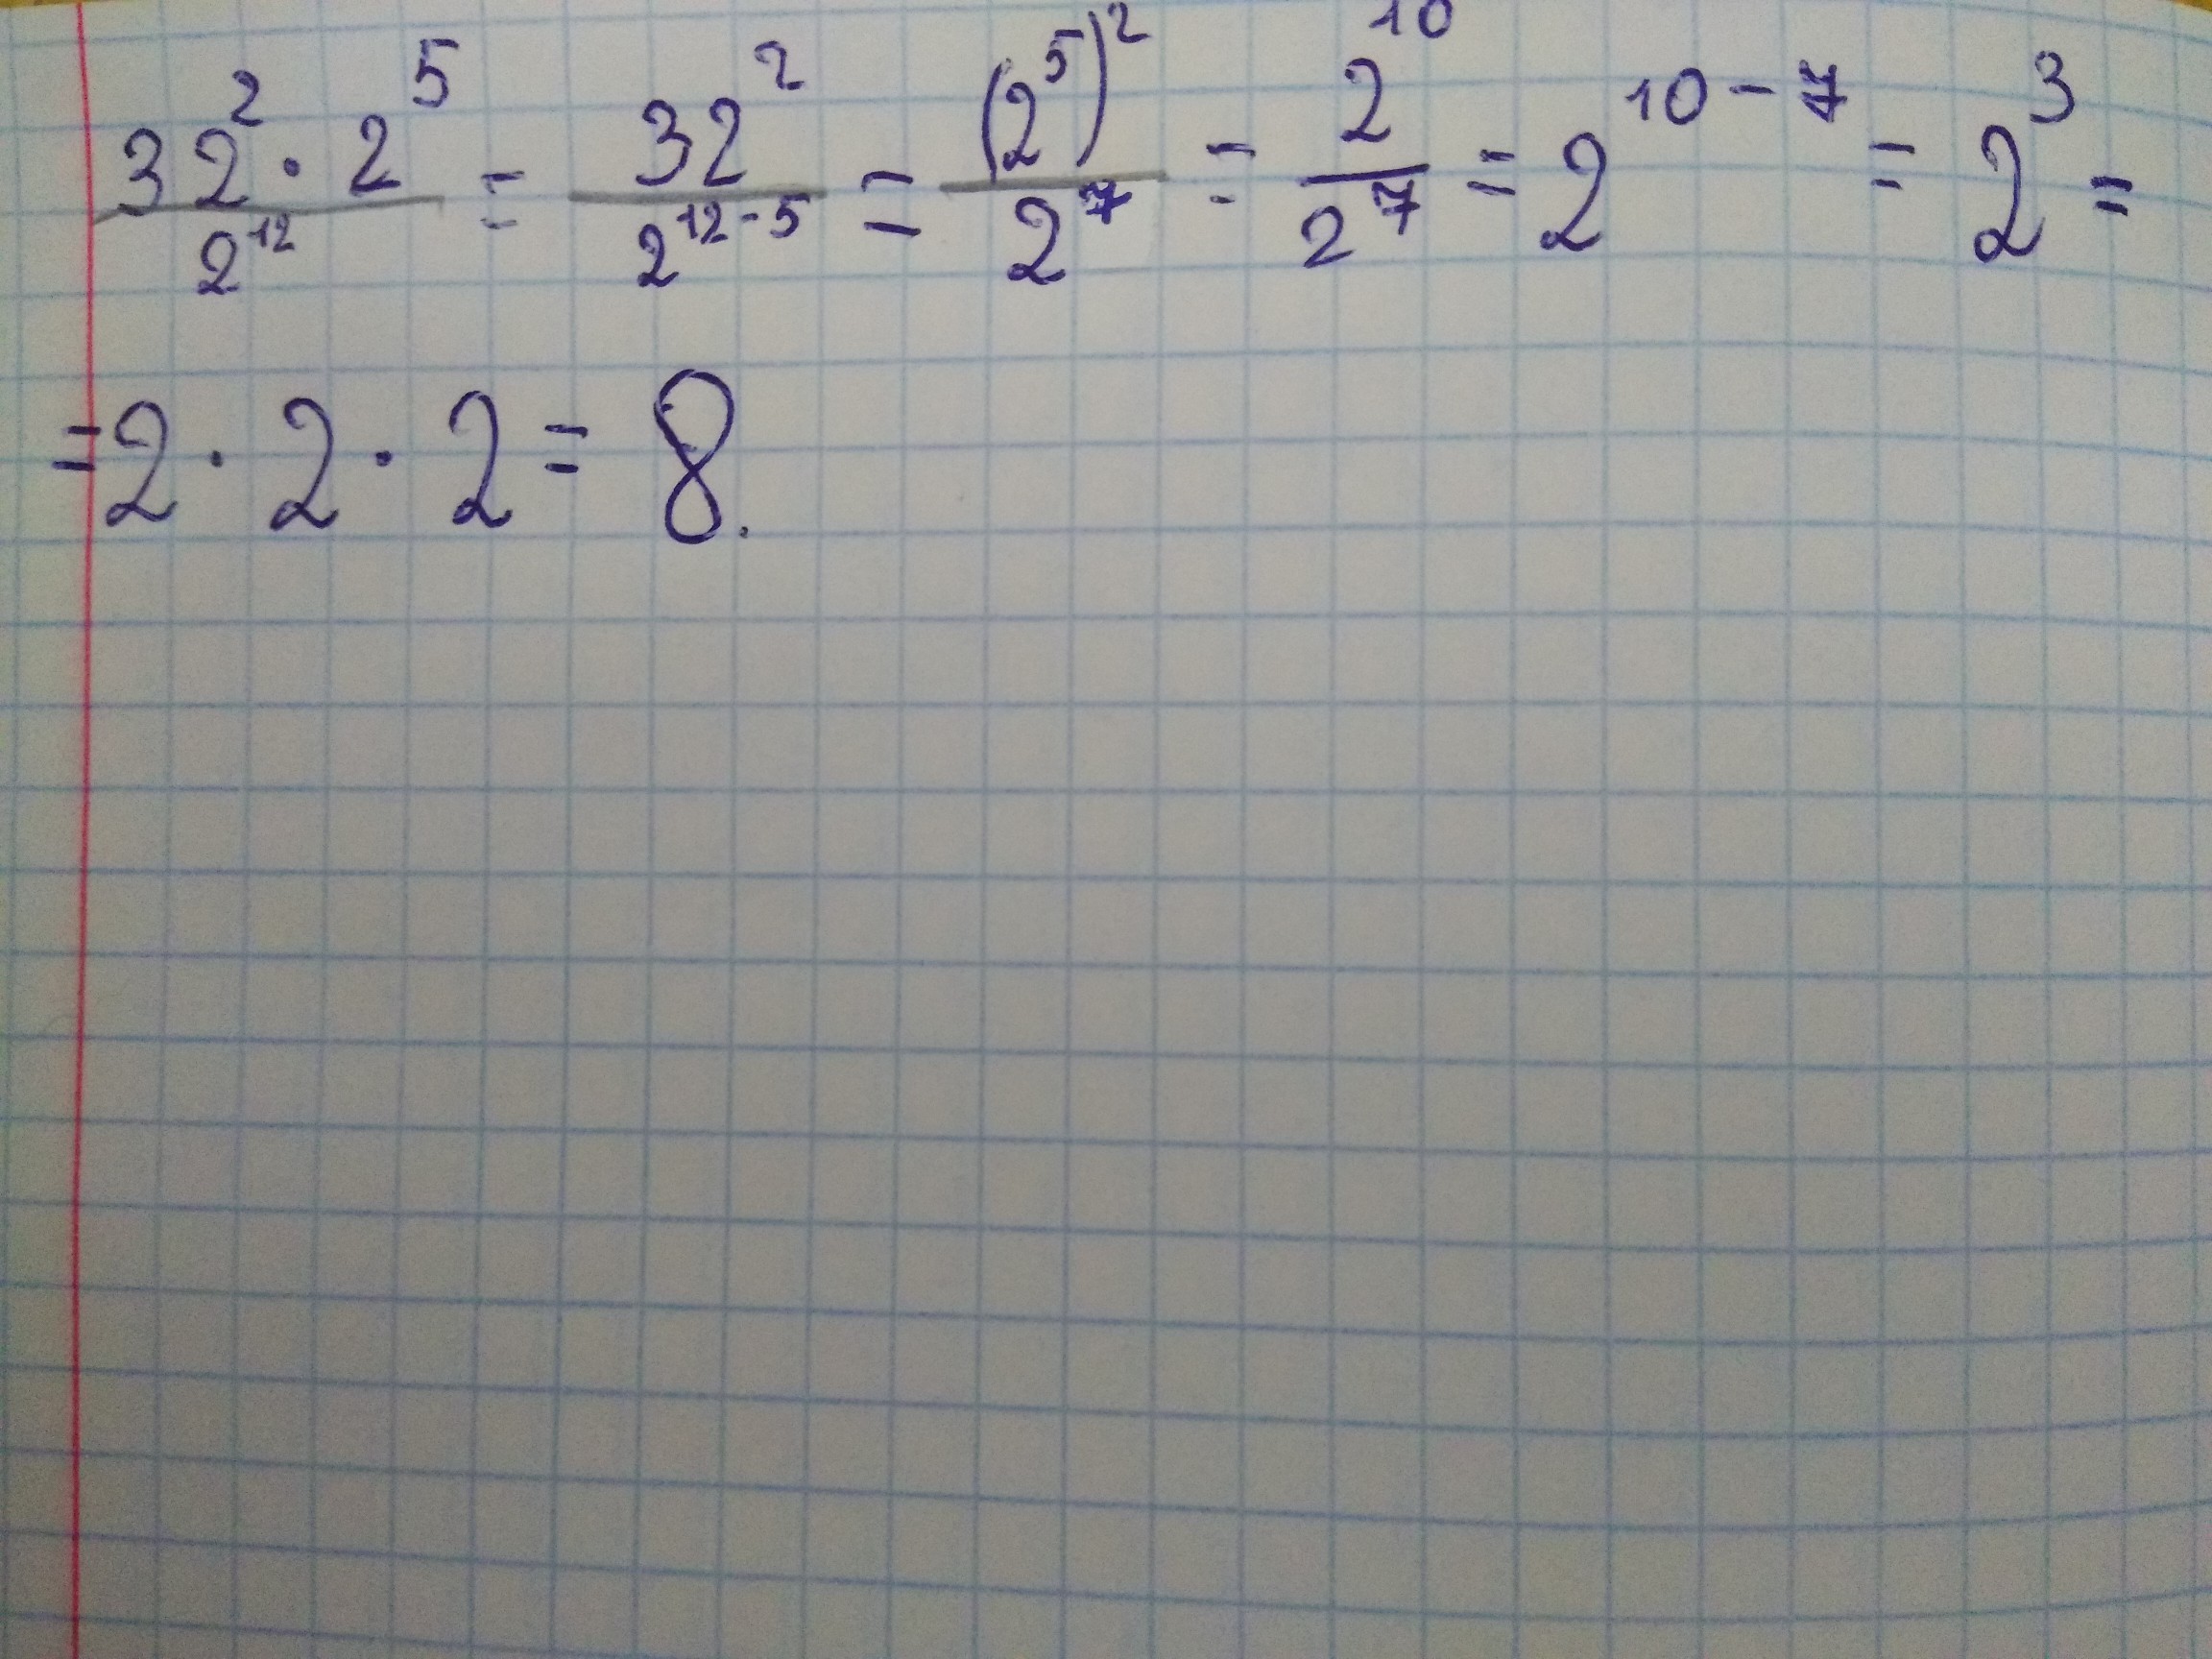 32² · 2⁵ / 2¹² = 32² / 2¹²⁻⁵ = (2⁵)² / 2⁷ = 2¹⁰ / 2⁷ = 2¹⁰⁻⁷ = 2³ =
= 2 · 2 · 2 = 8.